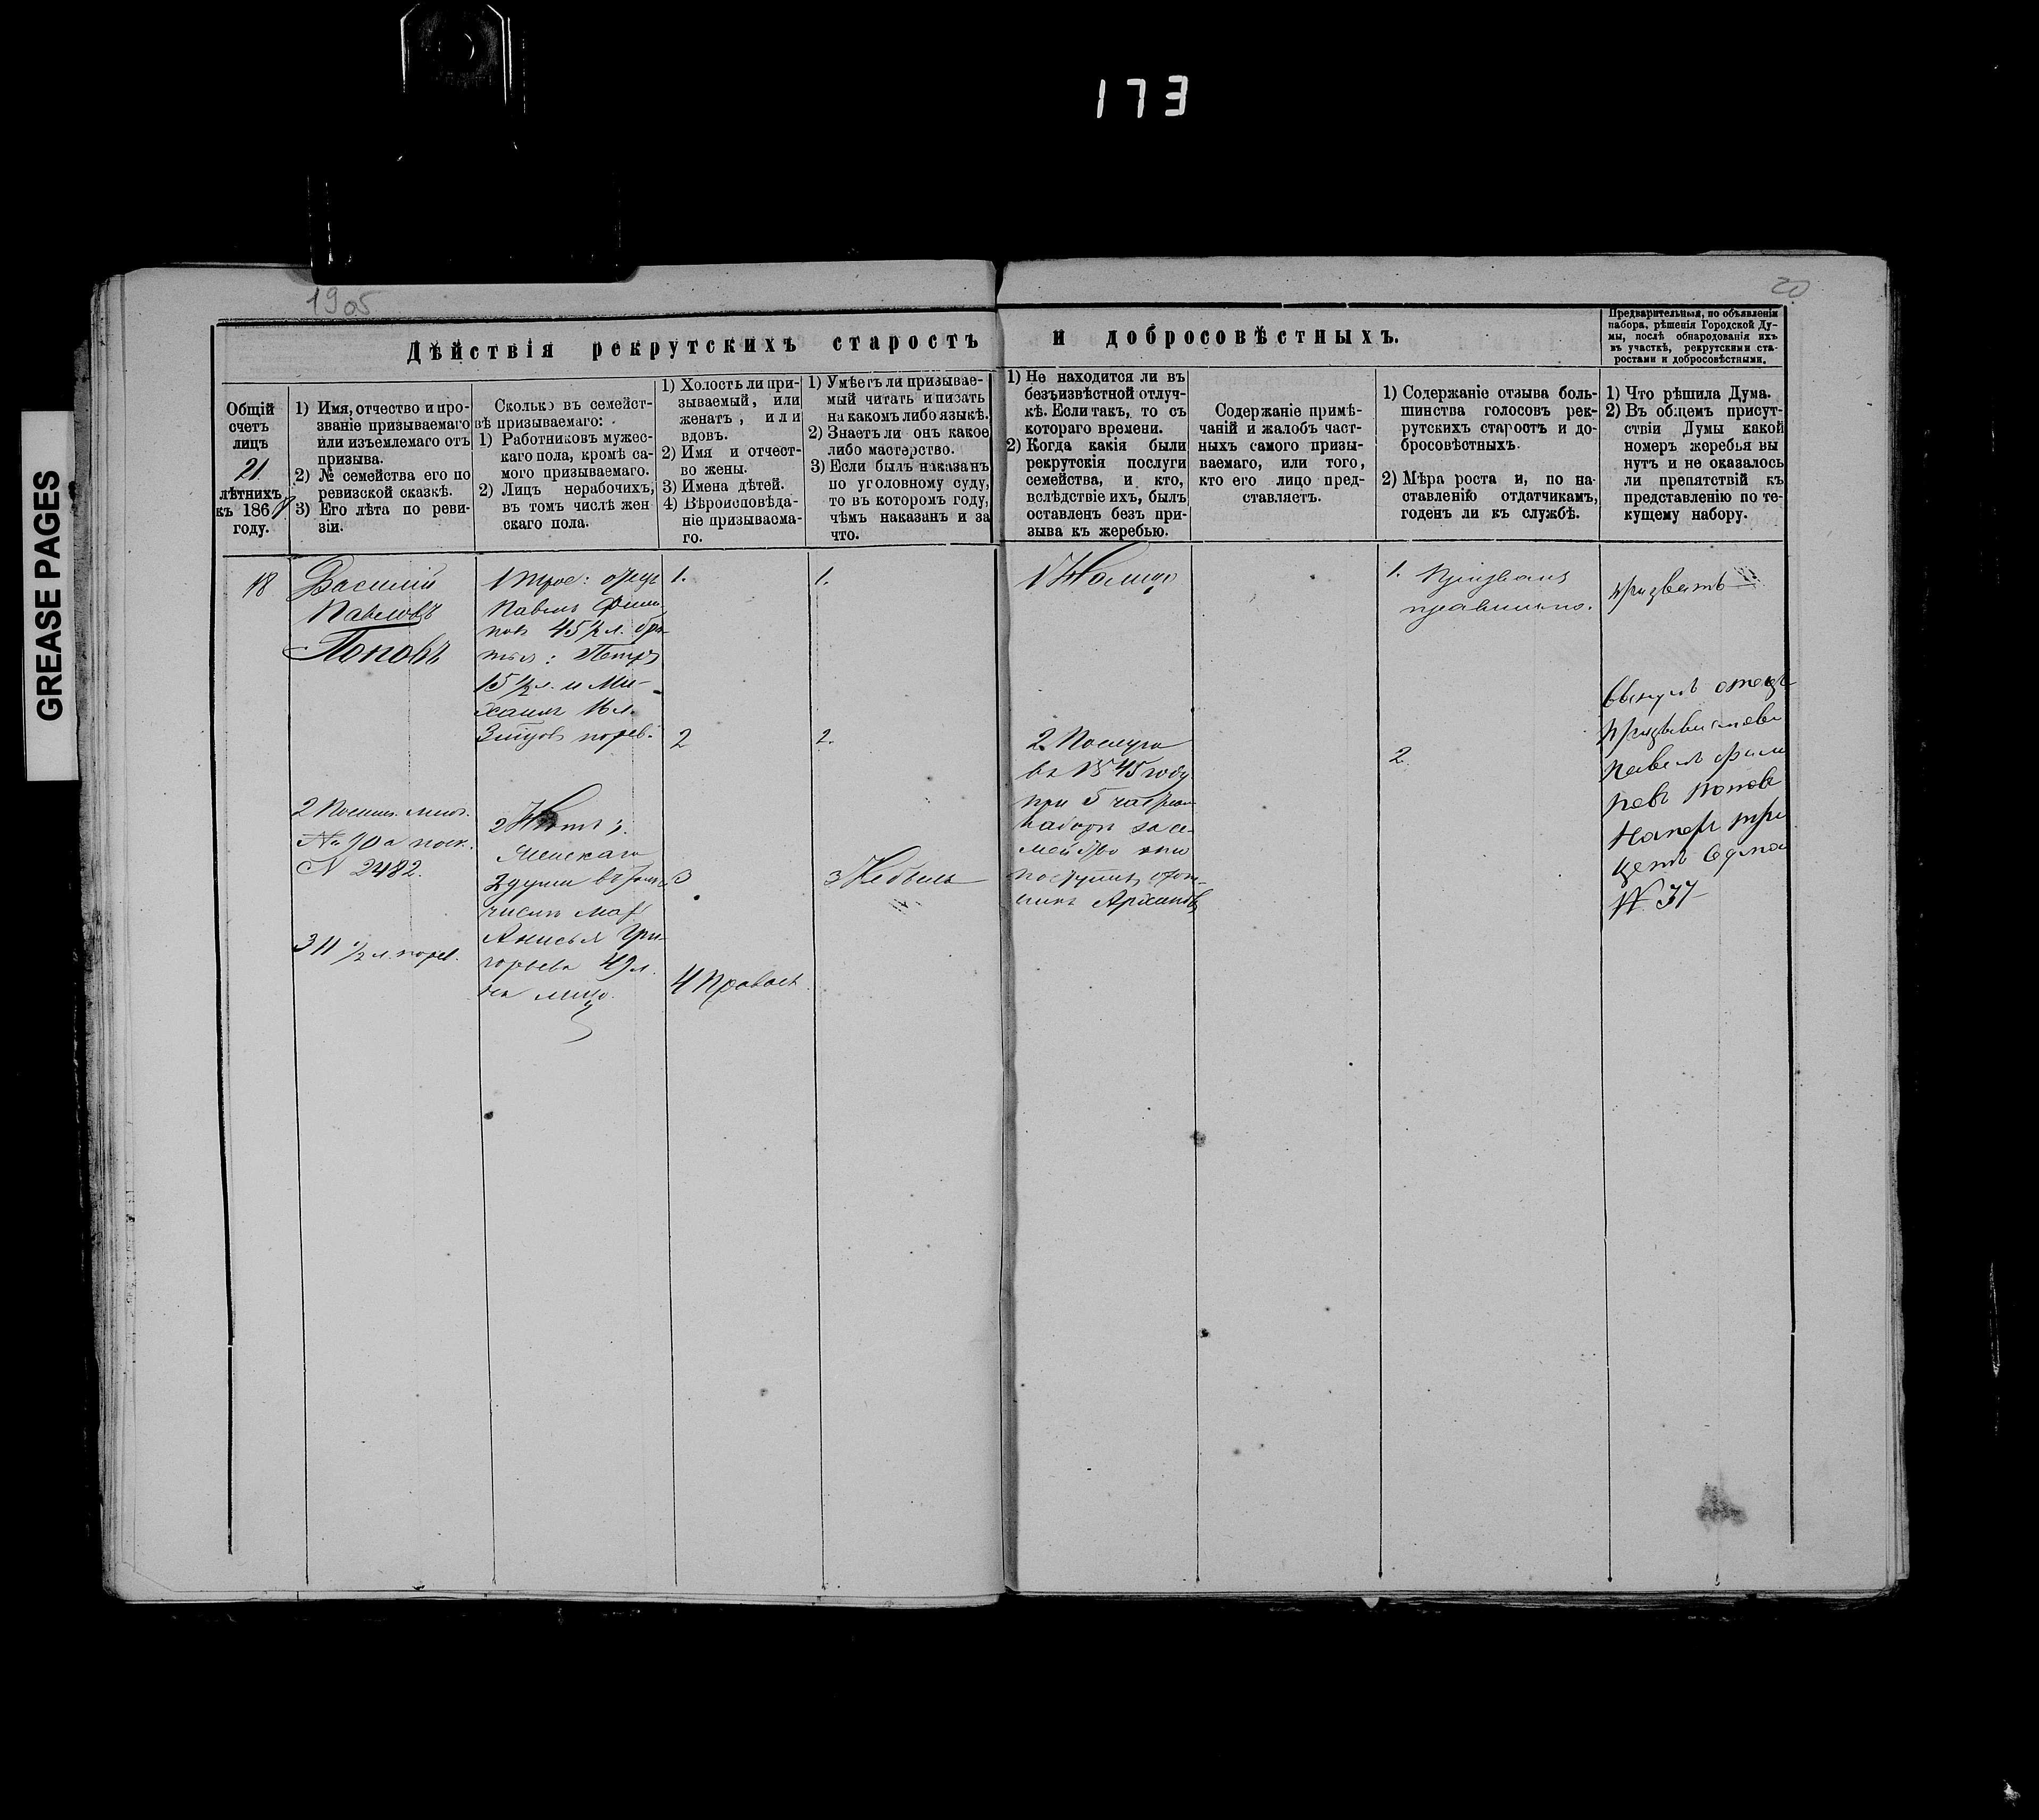 173
GREASE PAGES
1905
20
Дѣйствія рекрутскихъ старостъ и добросовѣстныхъ.
Предварительныя, по объявленіи
набора, рѣшенія Городской Ду-
мы, послѣ обнародованія ихъ
въ участкѣ, рекрутскими ста-
ростами и добросовѣстными.
Общій
счетъ
лицъ
21
лѣтнихъ
къ 186
году.
1) Имя, отчество и про-
званіе призываемаго
или изъемлемаго отъ
призыва.
2) № семейства его по
ревизской сказкѣ.
3) Его лѣта по реви-
зіи.
Сколько въ семейст-
вѣ призываемаго:
1) Работниковъ мужес-
каго пола, кромѣ са-
мого призываемаго.
2) Лицъ нерабочихъ,
въ томъ числѣ жен
скаго пола.
1) Холостъ ли при-
зываемый, или
женатъ, или
вдовъ.
2) Имя и отчест-
во жены.
3) Имена дѣтей.
4) Вѣроисповѣда-
ніе призываема-
го.
1) Умѣетъ ли призывае-
мый читать и писать
на какомъ либо языкѣ.
2) Знаетъ ли онъ какое
либо мастерство.
3) Если былъ наказанъ
по уголовному суду,
то въ которомъ году,
чѣмъ наказанъ и за
что.
1) Не находится ли въ
безъизвѣстной отлуч-
кѣ. Если такъ, то съ
котораго времени.
2) Когда какія были
рекрутскія послуги
семейства, и кто,
вслѣдствіе ихъ, былъ
оставленъ безъ при-
зыва къ жеребью.
Содержаніе примѣ-
чаній и жалобъ част-
ныхъ самого призы-
ваемаго, или того,
кто его лицо пред-
ставляетъ.
1) Содержаніе отзыва боль-
шинства голосовъ рек-
рутскихъ старостъ и до-
бросовѣстныхъ.
2) Мѣра роста и, по на-
ставленію отдатчикамъ,
годенъ ли къ службѣ.
1) Что рѣшила Дума.
2) Въ общемъ присут-
ствіи Думы какой
номеръ жеребья вы
нутъ и не оказалось
ли препятствій къ
представленію по те-
кущему набору.
18
Василій
Павловъ
Поповъ
2
№ 90 а
N 2482.
3 11 1/2 л. по рев.
1 Трое: отецъ
Павелъ Филип
повъ 45 1/2 л. бра
тья: Петръ
15 1/2 л. и Ми-
хаилъ 16 л.
по рев.
2 Нѣтъ;
Женскаго
2 души въ томъ
числѣ мать
Анисья Гри-
горьева 49 л.
на лицо.
1.
2
3
4 Правосл.
1.
2.
3 Не былъ
1 На лицо
2. Послуга
въ 1845 году
при 5 част.
наборѣ за се-
мейство
поступилъ
1. Призванъ
правильно.
2.
призвать
вынулъ отецъ
призываемаго
Павелъ Филип
повъ Поповъ
номеръ три
цать седмой
№ 37